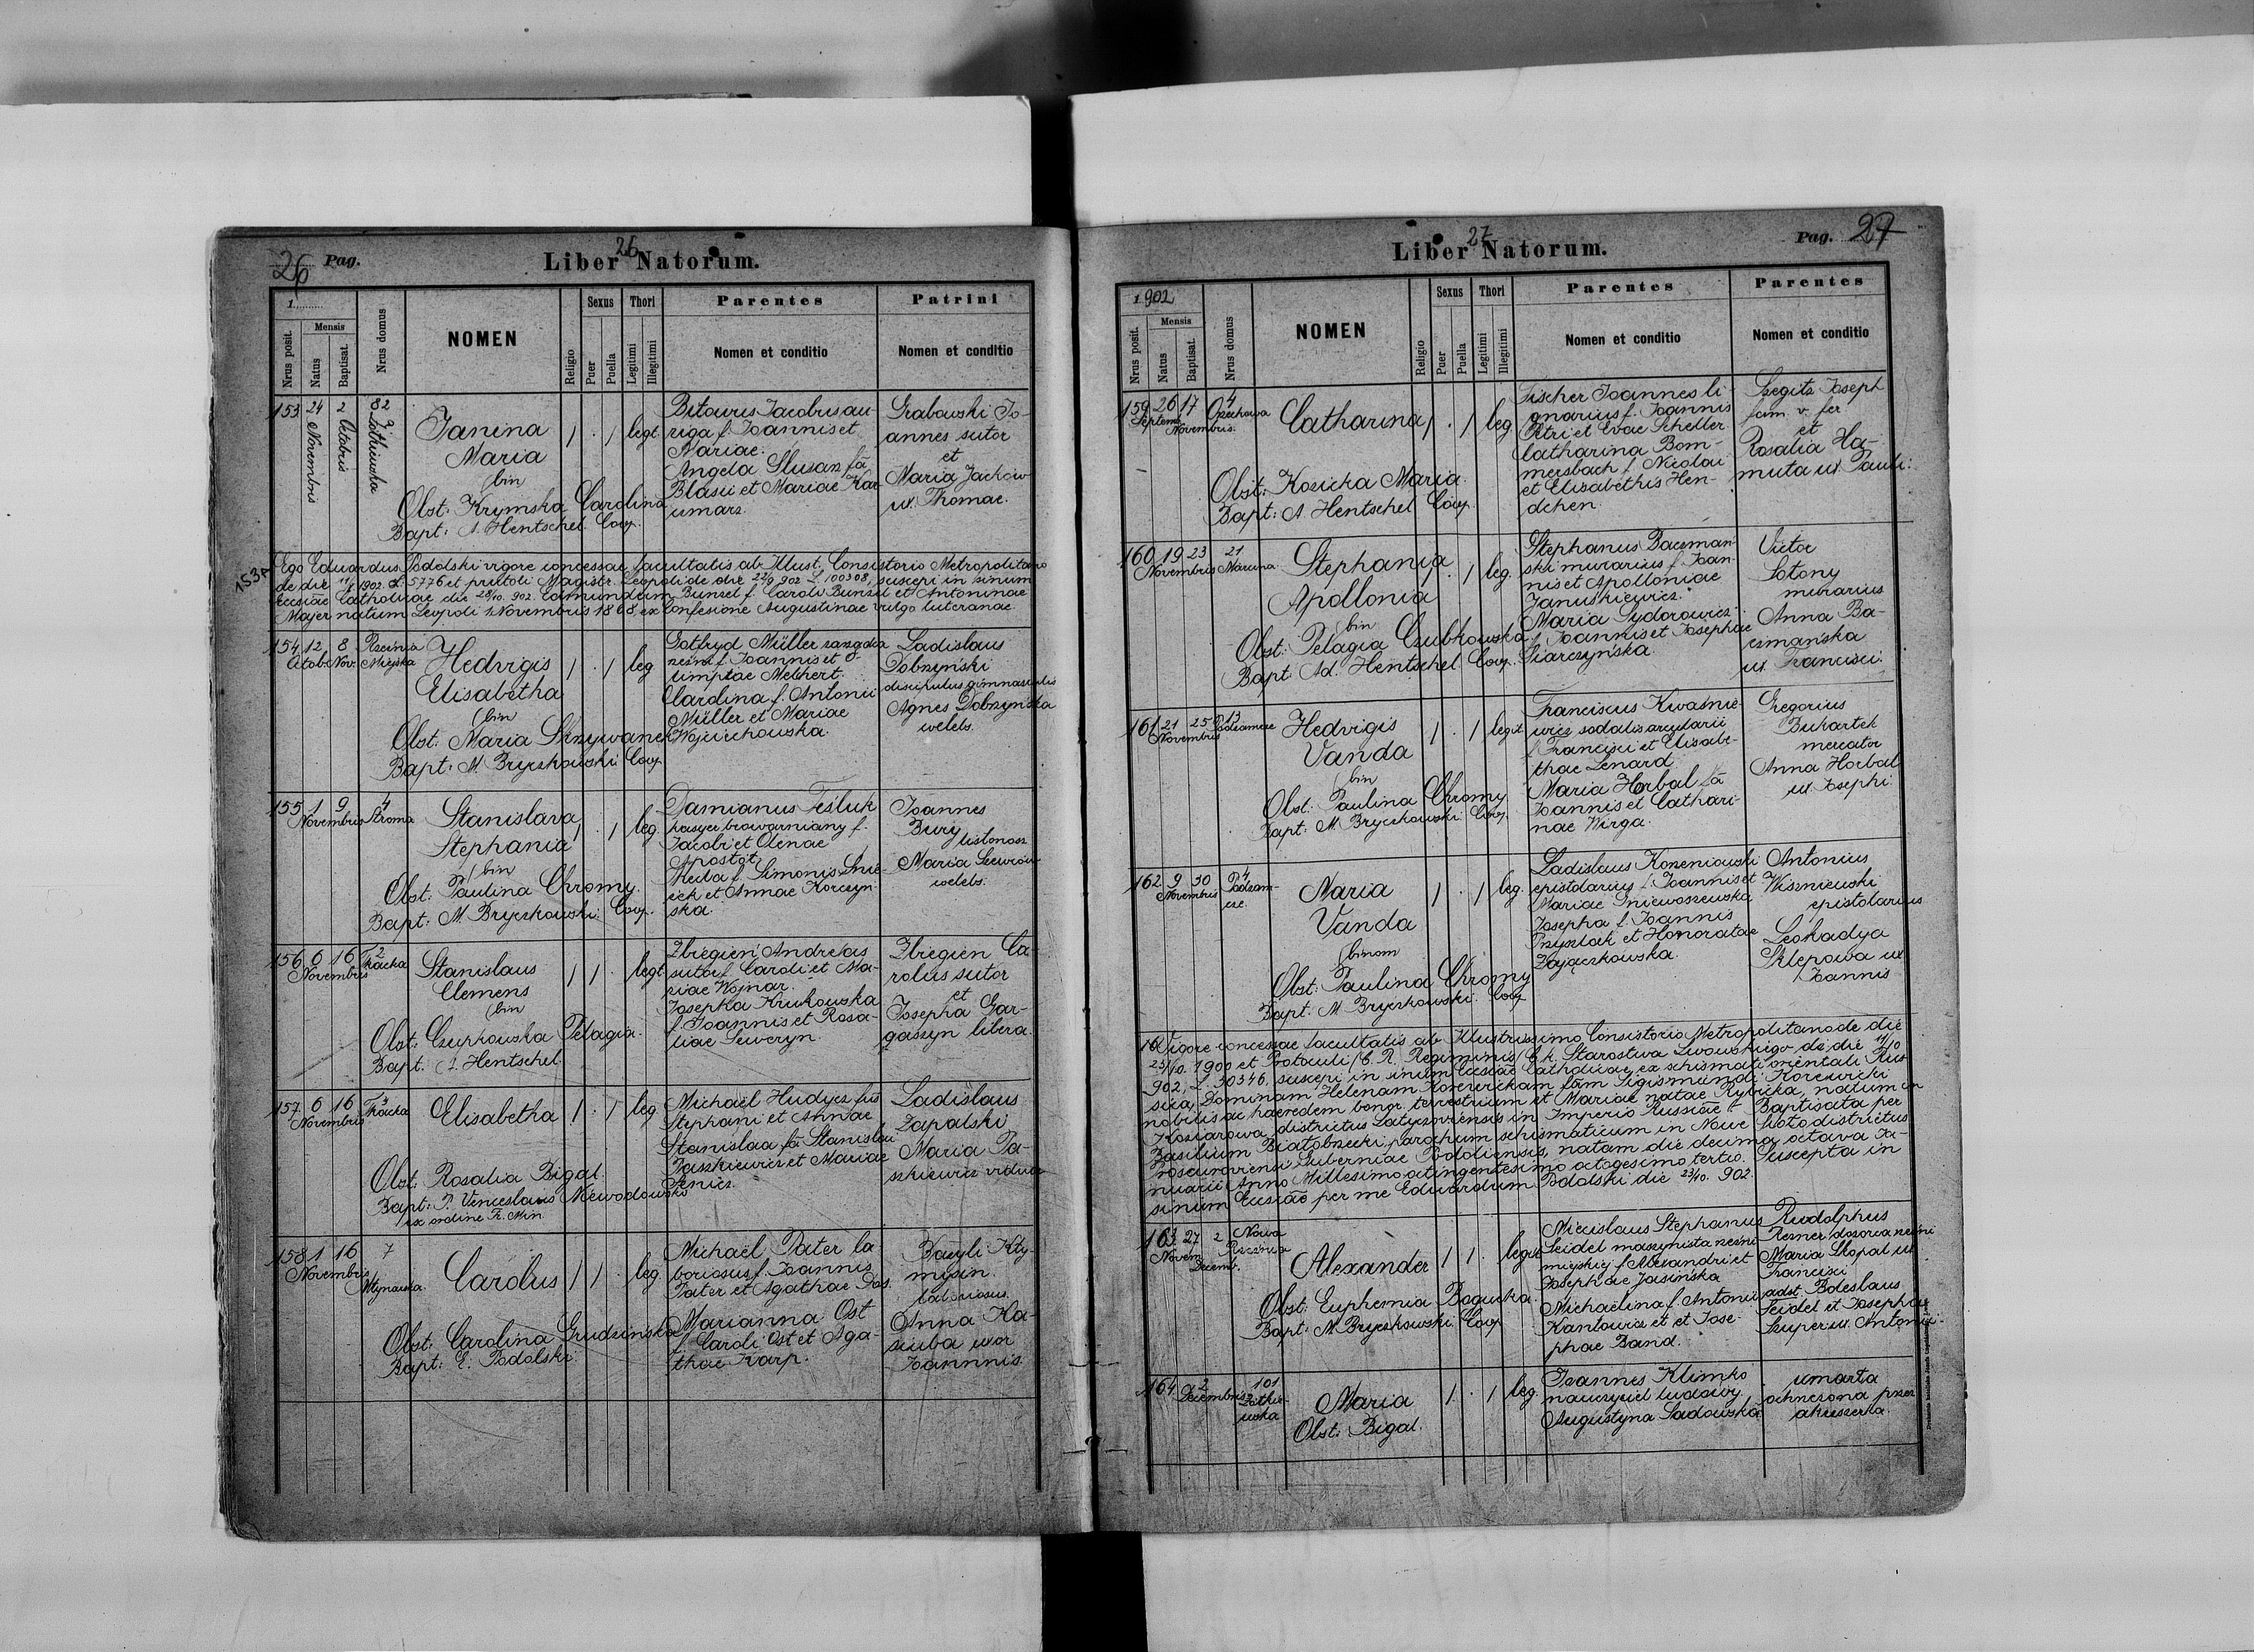 26 Pag.
26
Liber Natorum.
1.........
Mensis
Nrus posit.
Natus
Baptisat.
Nrus domus
NOMEN
Religio
Sexus
Puer
Puella
Thori
Legitimi
Illegitimi
Parentes
Nomen et conditio
Patrini
Nomen et conditio
153 24 Novembris 2 Octobris 82
Janina
Maria
bin
Obst: Krymska Carolina
Bapt: A. Hentschel Coop.
1 . 1 legt
Bitowus Jacobus au
riga f. Joannis et
Mariae.
Angela Slusar fa
Blasii et Mariae Kar
umarz.
Grabowski Jo-
annes sutor
et
Maria Jachow
ux. Thomae.
153A
Ego Eduardus Podolski vigore concessae facultatis ab Illust. Consistorio Metropolitano
de die 11/1 1902 L. 5776 et prutoli Magistr. Leopoli de die 22/9 902 L. 100308, suscepi in sinum
Ecclesiae Catholicae die 28/10. 902. Edmundum Bunzel f. Caroli Bunzel et Antoninae
Majer natum Leopoli 1 Novembris 1868, ex Confesione Augustinae vulgo luteranae.
154 12 Octob. 8 Nov. Rzeźnia Miejska
Hedvigis
Elisabetha
bin
Obst: Maria Skrzywanek
Bapt: M. Bryczkowski Coop
1 . 1 leg
Gotfryd Müller
rzeźni f. Joannis et O-
limptae Melhert.
Carolina f. Antonii
Müller et Mariae
Wojciechowska.
Ladislaus
Dobrzyński
discipulus gimnasialis
Agnes Dobrzyńska
welebs.
155 1 9 Novembris 4 Stroma
Stanislava
Stephania
bin
Obst: Paulina Chromy.
Bapt: M. Bryczkowski: Coop.
1 . 1 leg.
Damianus Feśluk
kasyer browarniany f.
Jacobi et Olenae
Apostoł.
Thecla f. Simonis Snie
żek et Annae Korczyn
ska.
Joannes
Bury
listonosz
Maria Szewrów
welebs.
156 6 16 Novembris 2 Tkacka
Stanislaus
Clemens
bin
Obst: Czupkowska Pelagia.
Bapt. A. Hentschel
1 1 . legt
Zbiegień Andreas
sutor f. Caroli et Ma-
riae Wojnar.
Josepha Krukowska
f. Joannis et Rosa-
liae Seweryn
Zbiegien Ca-
rolus sutor
et
Josepha Gar-
gaszyn libera.
157 6 16 Novembris 3 Tkacka
Elisabetha
Obst: Rosalia Bigal.
Bapt: P. Venceslaus Niewodowski
ex ordine Fr. Min.
1 . 1 leg
Michaël Hudycz fus
Stephani et Annae
Stanislaa fa Stanislai
Paszkiewicz et Mariae
Ladislaus
Zapalski
Maria Pa-
szkiewicz vidua
158 1 16 Novembris 7 Młynarska
Carolus
Obst: Carolina Grudzinska
Bapt: E. Podolski.
1 1 . leg
Michaël Pater la
boriosus f. Joannis
Pater et Agathae Pas.
Marianna Ost
f. Caroli Ost et Aga-
thae Karp.
Bazyli Kty-
mysin.
laboriosus.
Anna Ka-
siuba uxor
Joannnis
27
Pag. 27
Liber Natorum.
1.902
Mensis
Nrus posit.
Natus
Baptisat.
Nrus domus
NOMEN
Religio
Sexus
Puer
Puella
Thori
Legitimi
Illegitimi
Parentes
Nomen et conditio
Parentes
Nomen et conditio
159 26 Septem. 17 Novembris. 4 Orzechowa
Catharina
Obst: Kosicka Maria.
Bapt: A Hentschel Coop
1 . 1 leg
Fischer Joannes li-
gnarius f. Joannis
Petri et Evae Scheller
Catharina Bom-
mersbach f. Nicolai
et Elisabethis Hen-
dchen.
Szegits Joseph
fam. v. fer.
et
Rosalia Ha-
muta ux Pauli:
160 19 23 Novembris 21
Stephania
Apollonia
bin
Obst: Pelagia Czubkowska
Bapt: Ad. Hentschel Coop
1 . 1 leg.
Stephanus Baczman-
ski murarius f. Joan-
nis et Apolloniae
Januszkiewicz.
Maria Sydorowicz
f. Joannis et Josephae
Siarczyńska.
Victor
Sotony
murarius
Anna Ba-
czmańska
ux. Francisci.
161 21 25 Novembris 13 Podzamcze
Hedvigis
Vanda
bin
Obst: Paulina Chromy
Bapt: M. Bryczkowski Coop.
1 . 1 legit
Franciscus Kwaśnie-
wicz sodalis arcytarii
f. Francisci et Elisabe-
thae Lenard.
Maria Horbal fa
Joannis et Cathari-
nae Wirga.
Gregorius
Buhartek
mercator
Anna Horbal
ux Josephi.
162 9 30 Novembris 4 Podzam-
cze.
Maria
Vanda
binom
Obst: Paulina Chromy
Bapt: M Bryczkowski: Coop
1 . 1 leg.
Ladislaus Korzeniowski
epistolarius f. Joannis et
Mariae Gniewoszewska
Josepha f. Joannis
Przysztak et Honoratae
Zajączkowska.
Antonius
Wiszniewski
epistolarius
Leokadya
Sklepowa ux
Joannis
Vigore concessae facultatis ab Illustrissimo Consistorio Metropolitano de die
23/10. 1900 et Protouli /C. R. Regiminis/ C. k. Starostwa Lwowskiego de die 11/10
902. L. 30346. suscepi in sinum Ecclesiae Catholicae, ex schismati orientali Rus-
sica, Dominam Helenam Korzenickam fam Sigismundi Korzenicki
nobilis ac haeredem bonor. terrestrium et Mariae natae Rybicka, natum in
Kosiarowa, districtus Latyczoviensis in Imperio Russiae - Baptisata per
Basilium Białobrzecki, parochum schismaticum in Nowe Sioło districtus
Proscuroviensi Guberniae Podoliensis, natam die decima octava Ja-
nuarii Anno Millesimo octingentesimo octogesimo tertio. Suscepta in
sinum Ecclesiae per me Eduardum Podolski die 23/10. 902.
163 27 Novem. 2 Decemb. Nowa Rzeźnia
Alexander
Obst: Euphemia Bogucka.
Bapt: M. Bryczkowski Coop
1 1 . legit
Miecislaus Stephanus
Seidel maszynista rzeźni
miejskiej f. Alexandri et
Josephae Jasińska
Michaëlina f. Antonii
Kantowicz et et Jose-
phae Band.
Rudolphus
Rezner dozorca rzeźni
Maria Skopal ux
Francisci
adst. Boleslaus
Seidel et Josepha
Szuper ux. Antonii.
164 2 Decembris 101 Żółkie-
wska
Maria
Obst: Bigal.
1 . 1 leg.
Joannes Klimko
nauczyciel ludowy.
Augustyna Sadowska
umarła
ochrzczona przez
akuszerka.